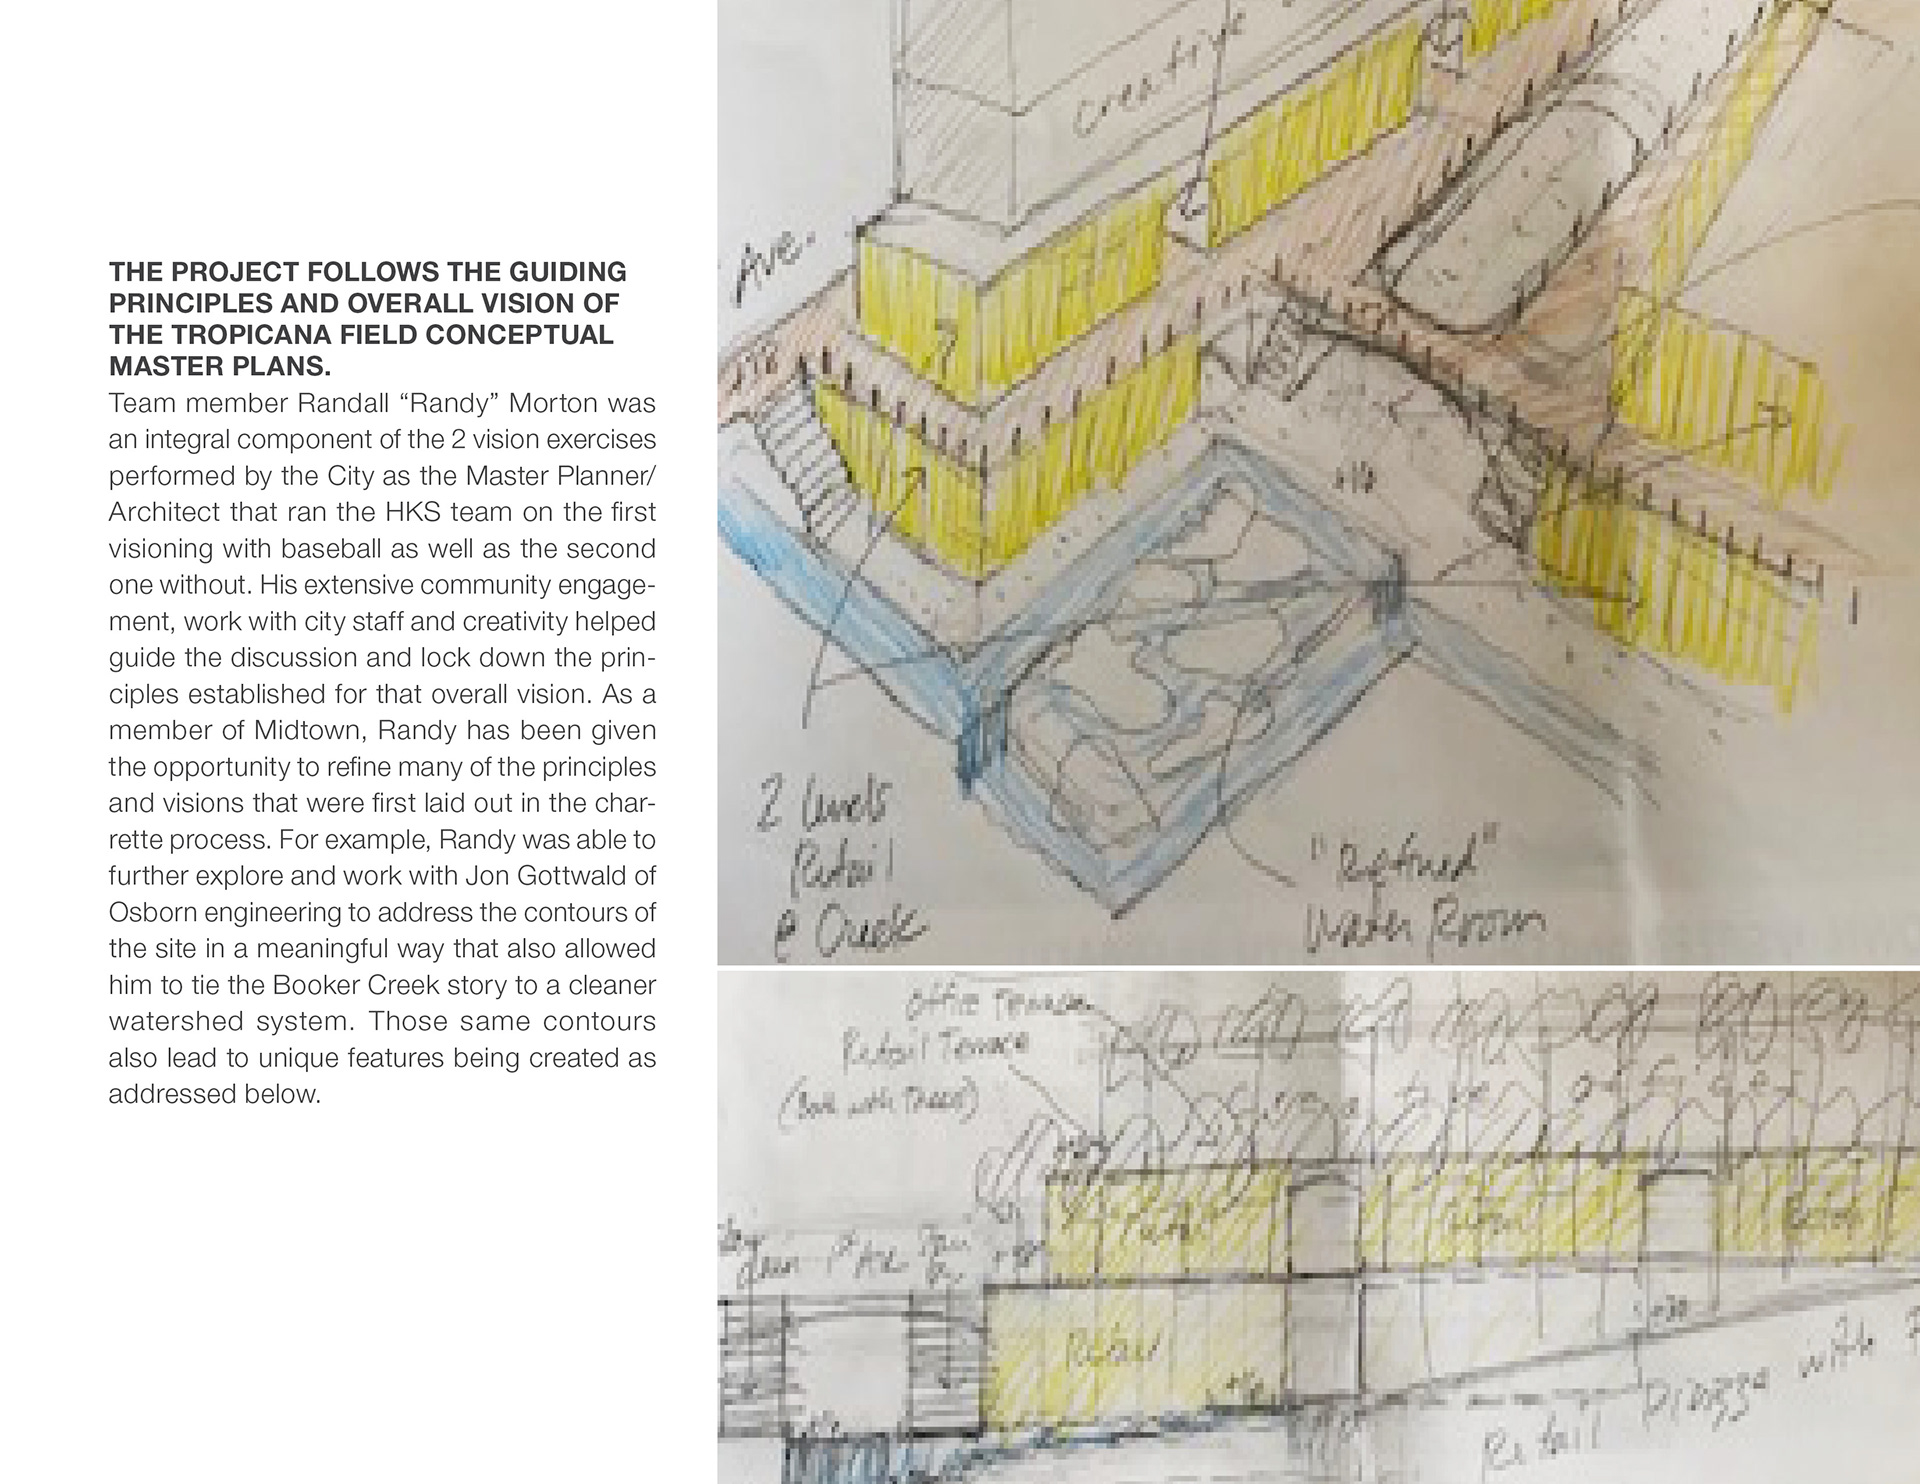 THE PROJECT FOLLOWS THE GUIDING
PRINCIPLES AND OVERALL VISION OF
THE TROPICANA FIELD CONCEPTUAL
MASTER PLANS.
Team member Randall “Randy” Morton was
an integral component of the 2 vision exercises
performed by the City as the Master Planner/
Architect that ran the HKS team on the first
visioning with baseball as well as the second
one without. His extensive community engage-
ment, work with city staff and creativity helped
guide the discussion and lock down the prin-
ciples established for that overall vision. As a
member of Midtown, Randy has been given
the opportunity to refine many of the principles
and visions that were first laid out in the char-
rette process. For example, Randy was able to
further explore and work with Jon Gottwald of
Osborn engineering to address the contours of
the site in a meaningful way that also allowed
him to tie the Booker Creek story to a cleaner
watershed system. Those same contours
also lead to unique features being created as
addressed below.
Creative
Ave.
+10
2 Levels
Retail
@ Creek
"Refined"
Water Room
Office Terrace
Retail Terrace
(Both with Trees)
Retail
Retail
Piazza with